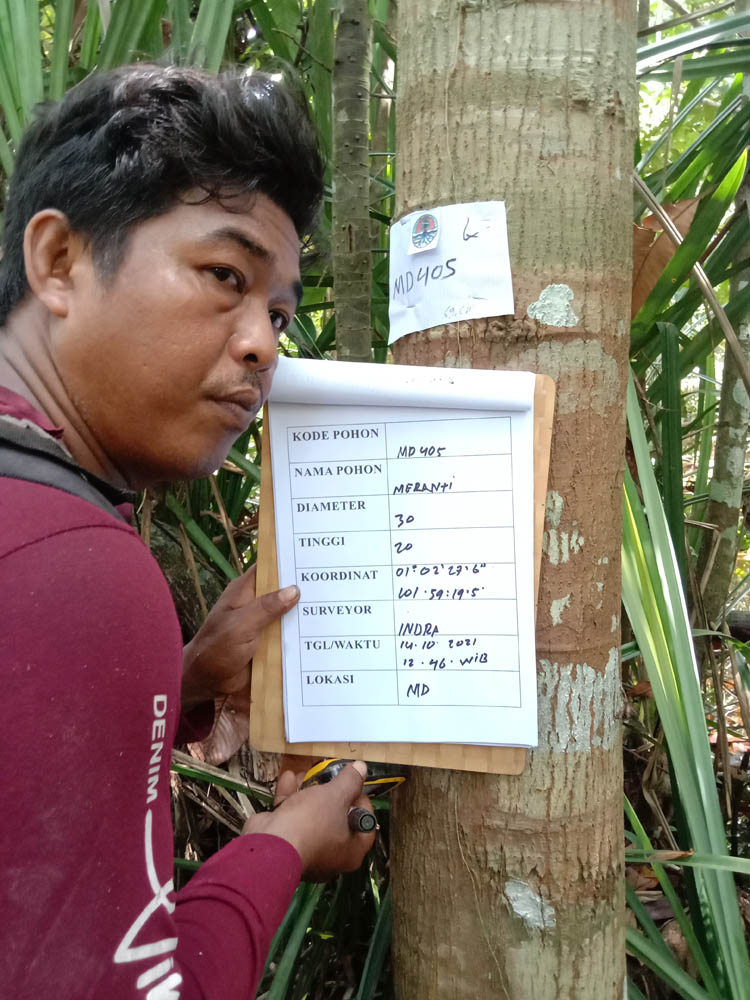 MD405
KODE POHON MD405
NAMA POHON MERANTI
DIAMETER 30
TINGGI 20
KOORDINAT 01° 02' 27' 6"
101 · 59 : 19 · 5'
SURVEYOR INDRA
TGL/WAKTU 14 · 10 · 2021
12 · 46 · WIB
LOKASI MD
DENIM